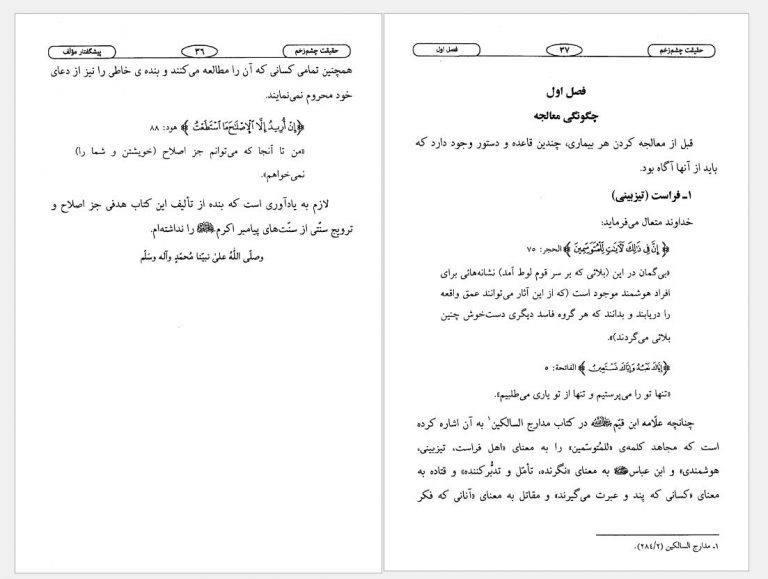 حقیقت چشم‌زخم ۳۶ پیشگفتار مؤلف
همچنین تمامی کسانی که آن را مطالعه می‌کنند و بنده ی خاطی را نیز از دعای
خود محروم نمی‌نمایند.
﴿إِنْ أُرِيدُ إِلَّا الْإِصْلَاحَ مَا اسْتَطَعْتُ﴾ هود: ۸۸
«من تا آنجا که می‌توانم جز اصلاح (خویشتن و شما را)
نمی‌خواهم».
لازم به یادآوری است که بنده از تألیف این کتاب هدفی جز اصلاح و
ترویج سنّتی از سنّت‌های پیامبر اکرم ﷺ را نداشته‌ام.
وصلّی اللهُ علیٰ نبیّنا مُحمّدٍ وآله وسلّم
حقیقت چشم‌زخم ۳۷ فصل اول
فصل اول
چگونگی معالجه
قبل از معالجه کردن هر بیماری، چندین قاعده و دستور وجود دارد که
باید از آنها آگاه بود.
۱ـ فراست (تیزبینی)
خداوند متعال می‌فرماید:
﴿إِنَّ فِي ذَٰلِكَ لَآيَاتٍ لِّلْمُتَوَسِّمِينَ﴾ الحجر: ۷۵
«بی‌گمان در این (بلائی که بر سر قوم لوط آمد) نشانه‌هائی برای
افراد هوشمند موجود است (که از این آثار می‌توانند عمق واقعه
را دریابند و بدانند که هر گروه فاسد دیگری دست‌خوش چنین
بلائی می‌گردند)».
﴿إِيَّاكَ نَعْبُدُ وَإِيَّاكَ نَسْتَعِينُ﴾ الفاتحة: ۵
«تنها تو را می‌پرستیم و تنها از تو یاری می‌طلبیم».
چنانچه علّامه ابن قیّم در کتاب مدارج السالکین۱ به آن اشاره کرده
است که مجاهد کلمه‌ی «للمُتوسّمین» را به معنای «اهل فراست، تیزبینی،
هوشمندی» و ابن عباس به معنای «نگرنده، تأمّل و تدبُّرکننده» و قتاده به
معنای «کسانی که پند و عبرت می‌گیرند» و مقاتل به معنای «آنانی که فکر
۱ـ مدارج السالکین (۲۸۴/۲).